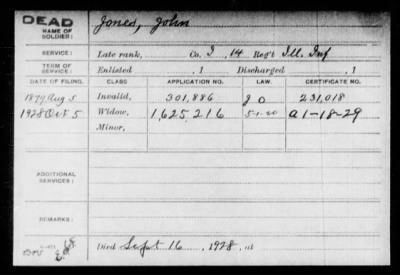 DEAD Jones, John
NAME OF SOLDIER:
SERVICE: Late rank, Co. I, 14 Reg't Ill. Inf
TERM OF SERVICE: Enlisted , 1 Discharged , 1
DATE OF FILING. CLASS. APPLICATION NO. LAW. CERTIFICATE NO.
1879 Aug 5 Invalid, 301,886 231,018
1928 Oct 5 Widow, 1,625,216 5-1-20 A1-18-29
Minor,
ADDITIONAL SERVICES:
REMARKS:
Died Sept 16, 1928, at